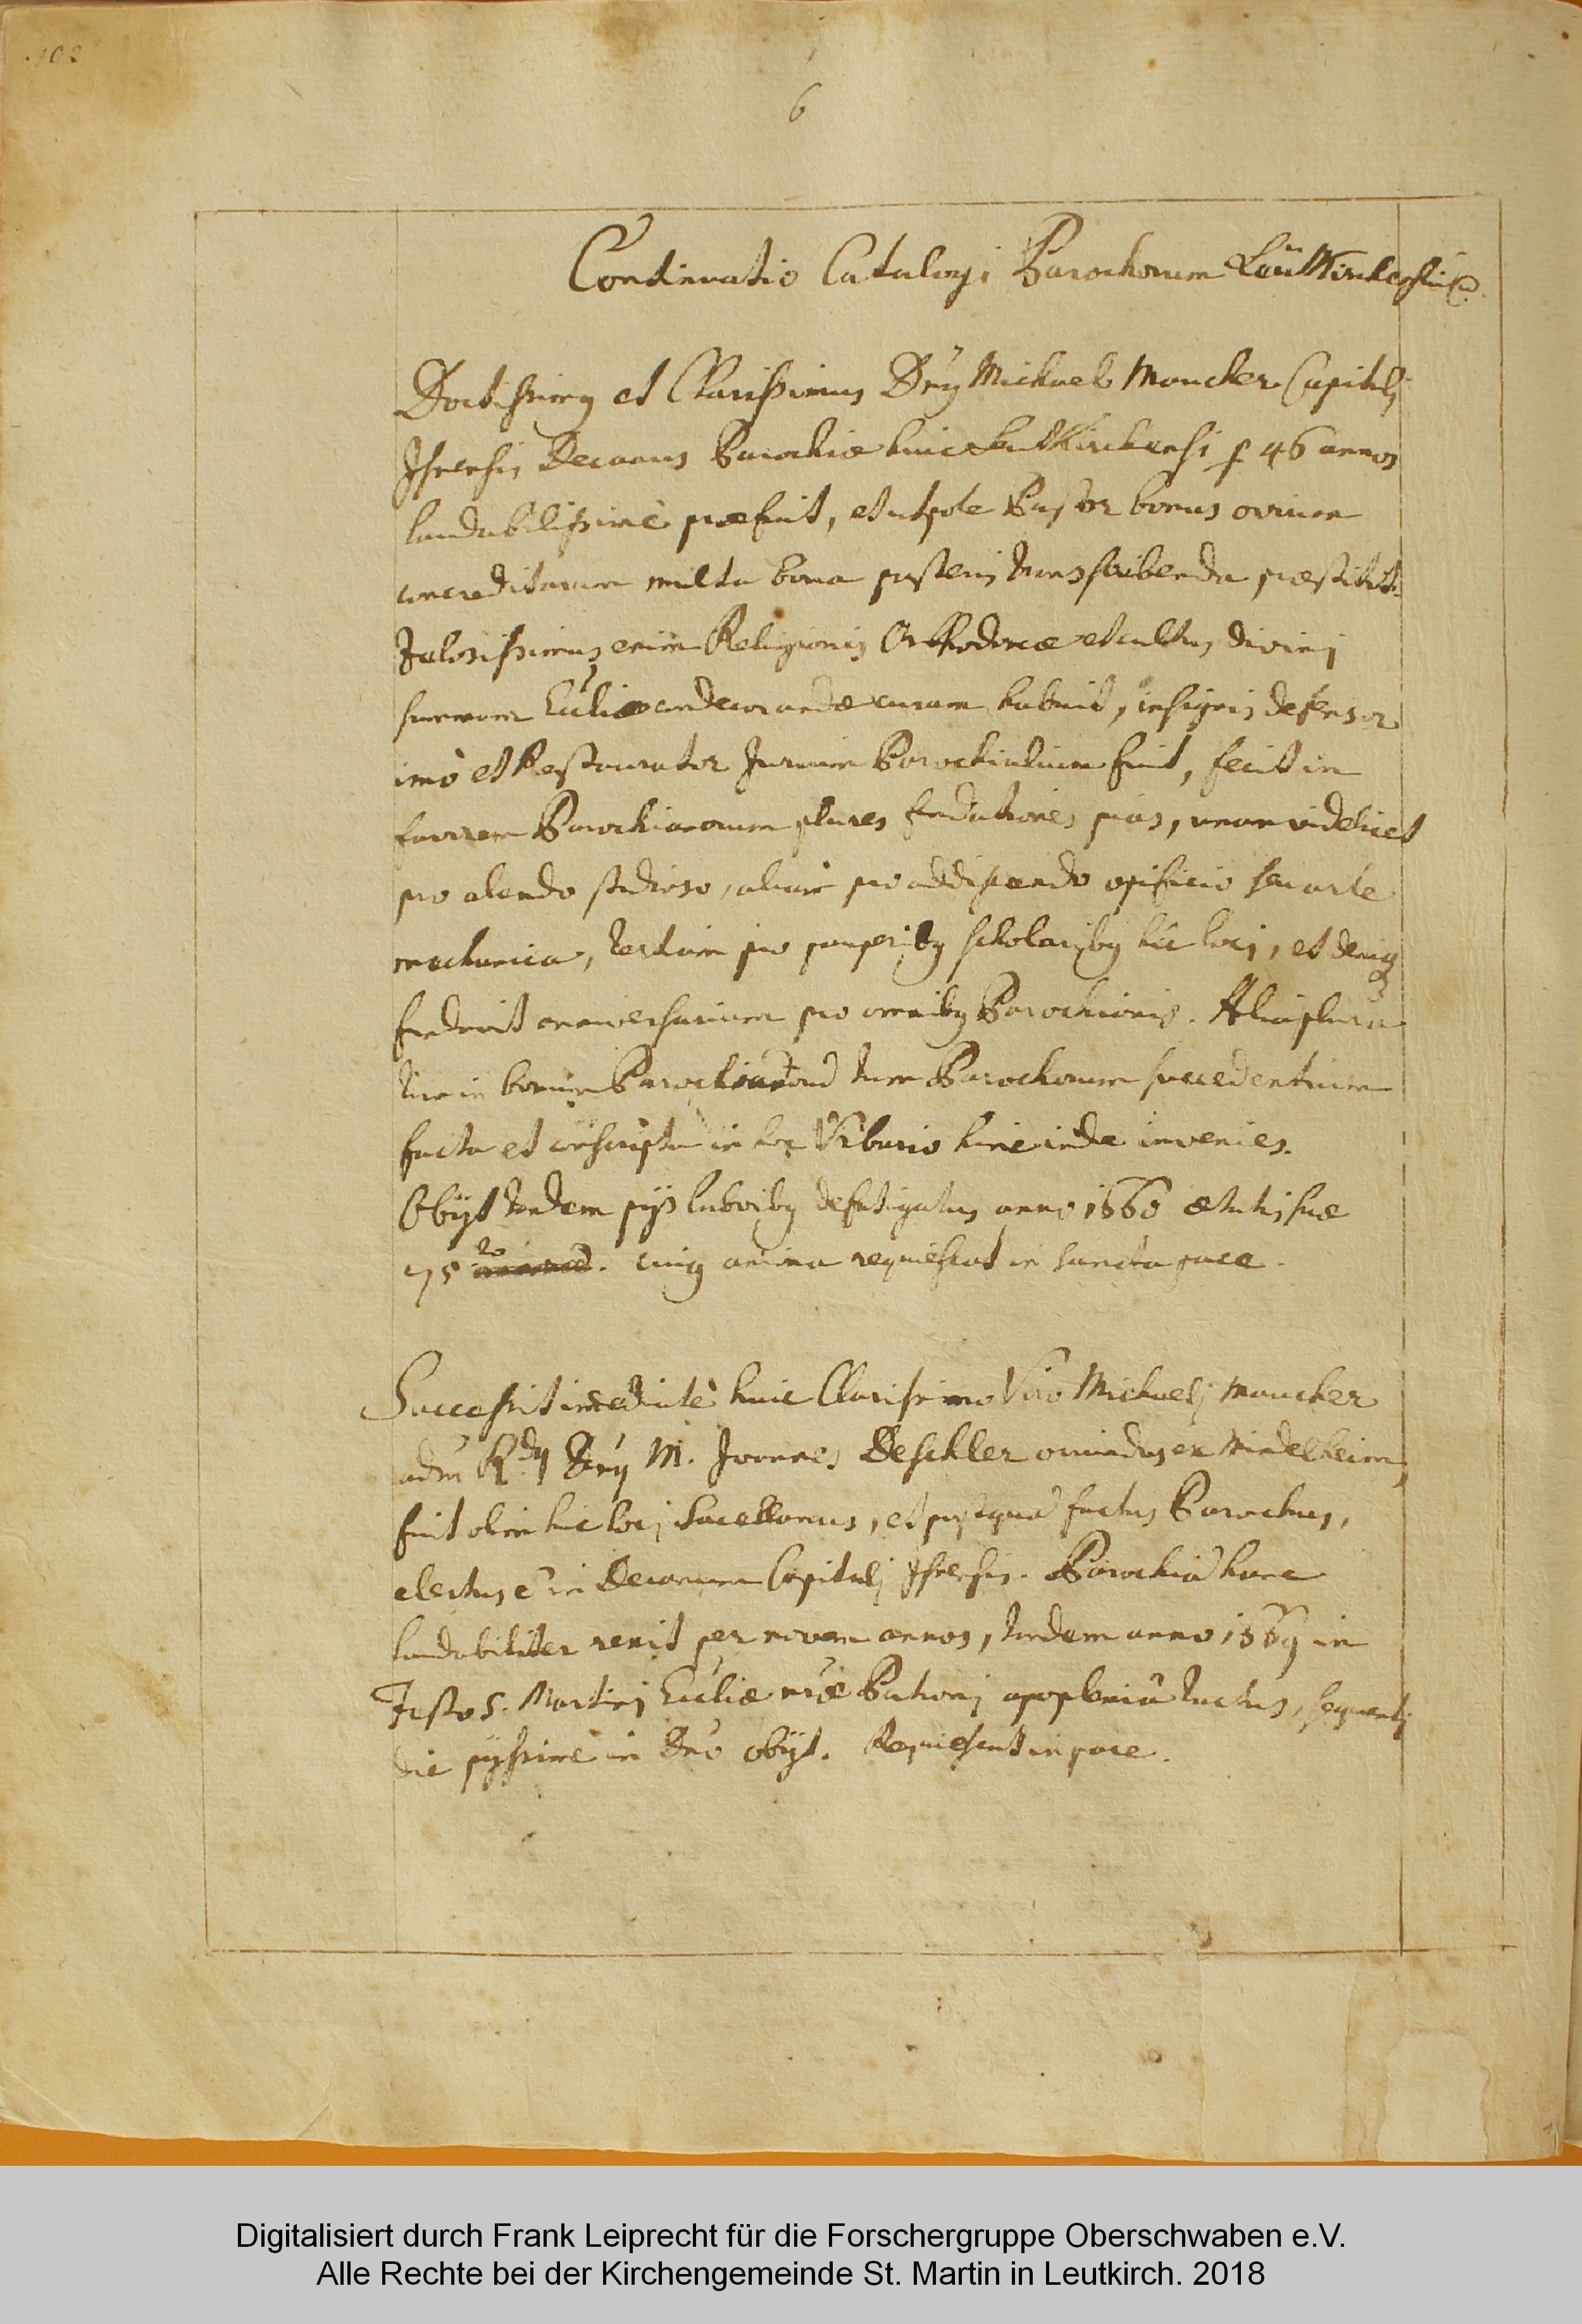 102
6
Continuatio Catalogi Parochorum Leüttkirchensiū.
Doctissimꝯ et Clarissimus Dn̄ꝯ Michael Maucher Capitulj
Jsnensis Decanus Parochiæ huic Leutkirchensi p 46 annos
laudabilissimè præfuit, et utpote Pastor bonus ovium
concreditarum multa bona posteris transscribenda præstitit.
Zelosissimus enim Religionis Orthodoxæ et cultus divinj
summam Eccliæ condecorandæ curam habuit, insignis defensor
imò et Restaurator Jurium Parochialium fuit, fecit in
favorem Parochianorum plures fundationes pias, unam videlicet
pro alendo studioso, aliam pro addiscendo opificio seu arte
mechanica, tertiam pro pauperibꝯ scholaribꝯ hic locj, et deniqꝫ
fundavit anniversarium pro omnibꝯ Parochianis. Alia plura
tum in bonum Parochianorū tum Parochorum succedentium
facta et conscripta in hoc Urbario hinc inde invenies.
Obijt tandem pijs laboribꝯ defatigatus anno 1660 ætatis suæ
75 to. cuiꝯ anima requiescat in sancta pace.
Successit im̄ediatè huic Clarissimo Viro Michaelj Maucher
adm̄ Rdꝯ Dn̄ꝯ M. Joannes Deschler oriundus ex Mindelheim,
fuit olim hic locj Sacellanus, et postquā factus Parochus,
electus ē in Decanum Capitulj Jsnensis. Parochiā hanc
laudabiliter rexit per novem annos, tandem anno 1669 in
Festo S. Martinj Eccliæ nr̄æ Patronj apoplexiâ tactus, sequentj
die pijssimè in Dn̄o obijt. Requiescat in pace.
Digitalisiert durch Frank Leiprecht für die Forschergruppe Oberschwaben e.V.
Alle Rechte bei der Kirchengemeinde St. Martin in Leutkirch. 2018